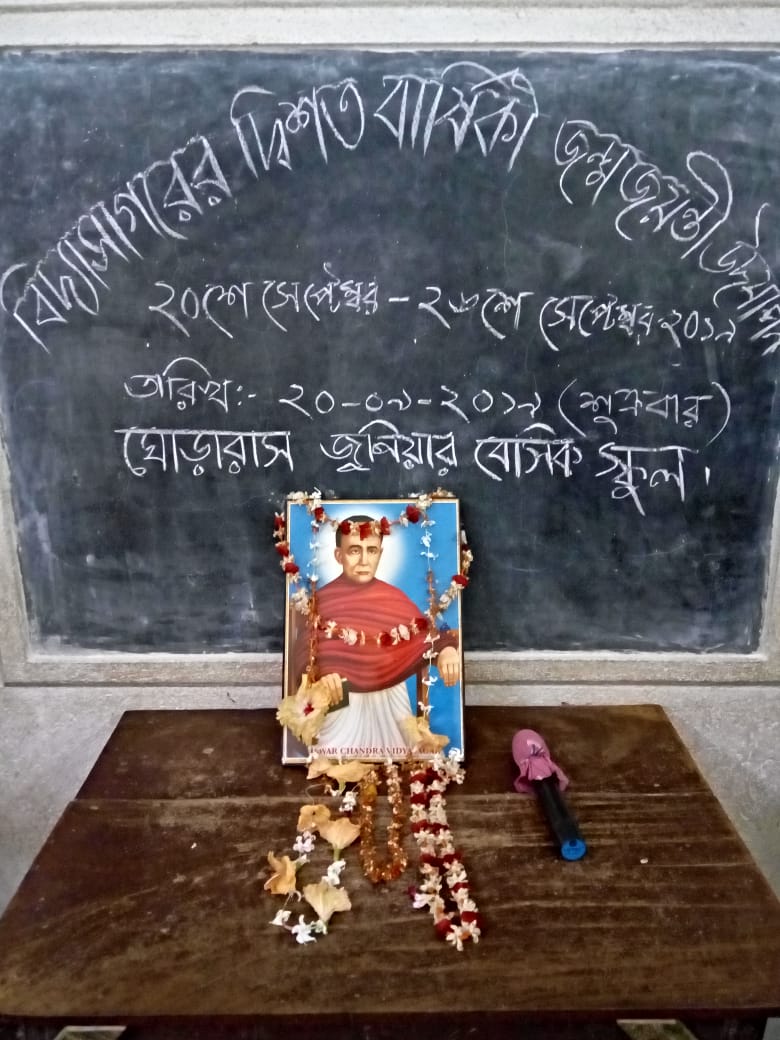 বিদ্যাসাগরের দ্বিশত বার্ষিকী জন্ম জয়ন্তী উদযাপন
২০শে সেপ্টেম্বর - ২৬শে সেপ্টেম্বর ২০১৯
তারিখ:- ২০-০৯-২০১৯ (শুক্রবার)
ঘোড়ারাস জুনিয়ার বেসিক স্কুল।
ISWAR CHANDRA VIDYASAGAR